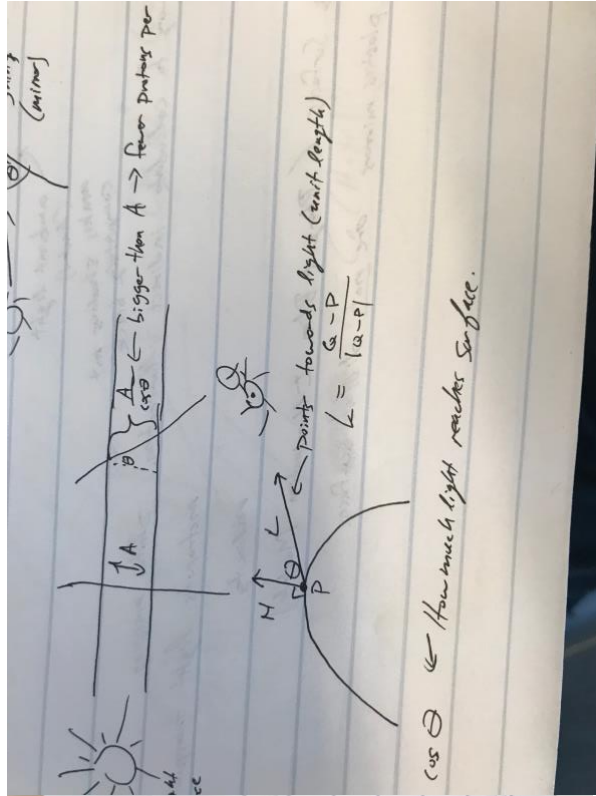 (mirror)
θ
light
ce
A
θ
A/cosθ ← bigger than A → fewer protons per
Q
N
L
θ
P
← points towards light (unit length)
L = Q - P / |Q - P|
cos θ ← How much light reaches surface.